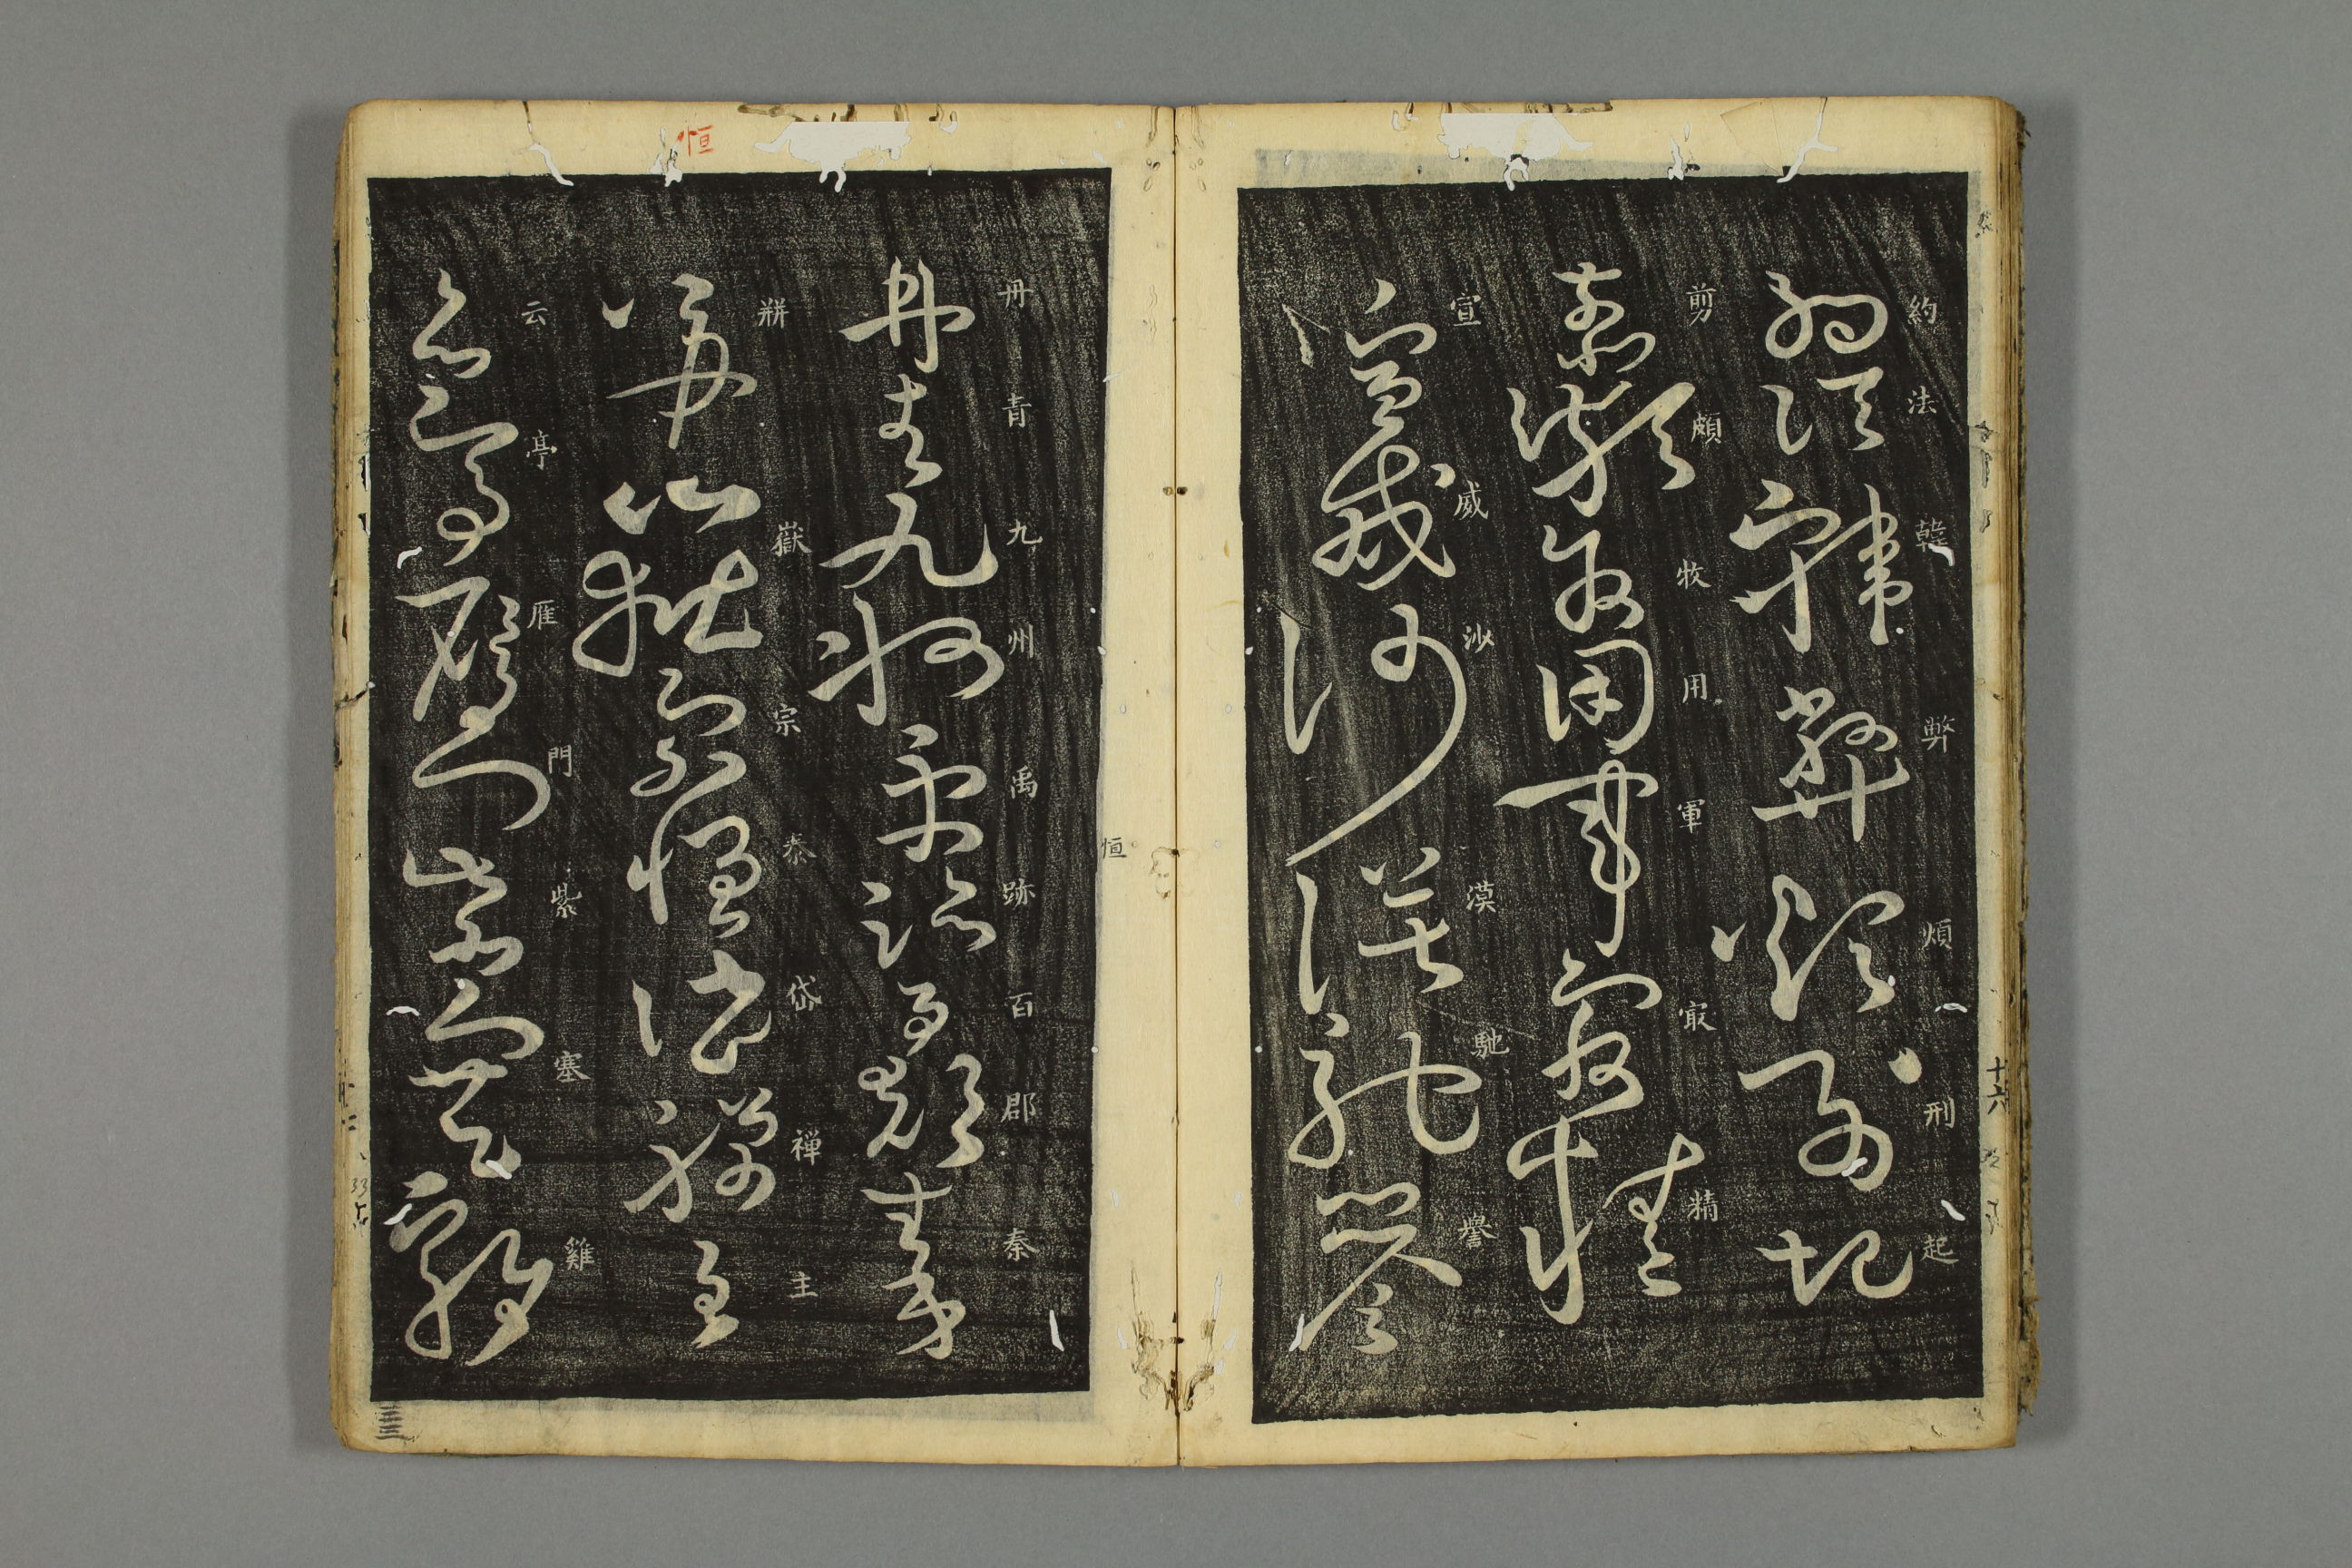 約法韓弊煩刑起
剪頗牧用軍㝡精
宣威沙漠馳譽
丹青九州禹跡百郡秦
恒
恒
䍮嶽宗泰岱禅主
云亭雁門紫塞雞
十六
三